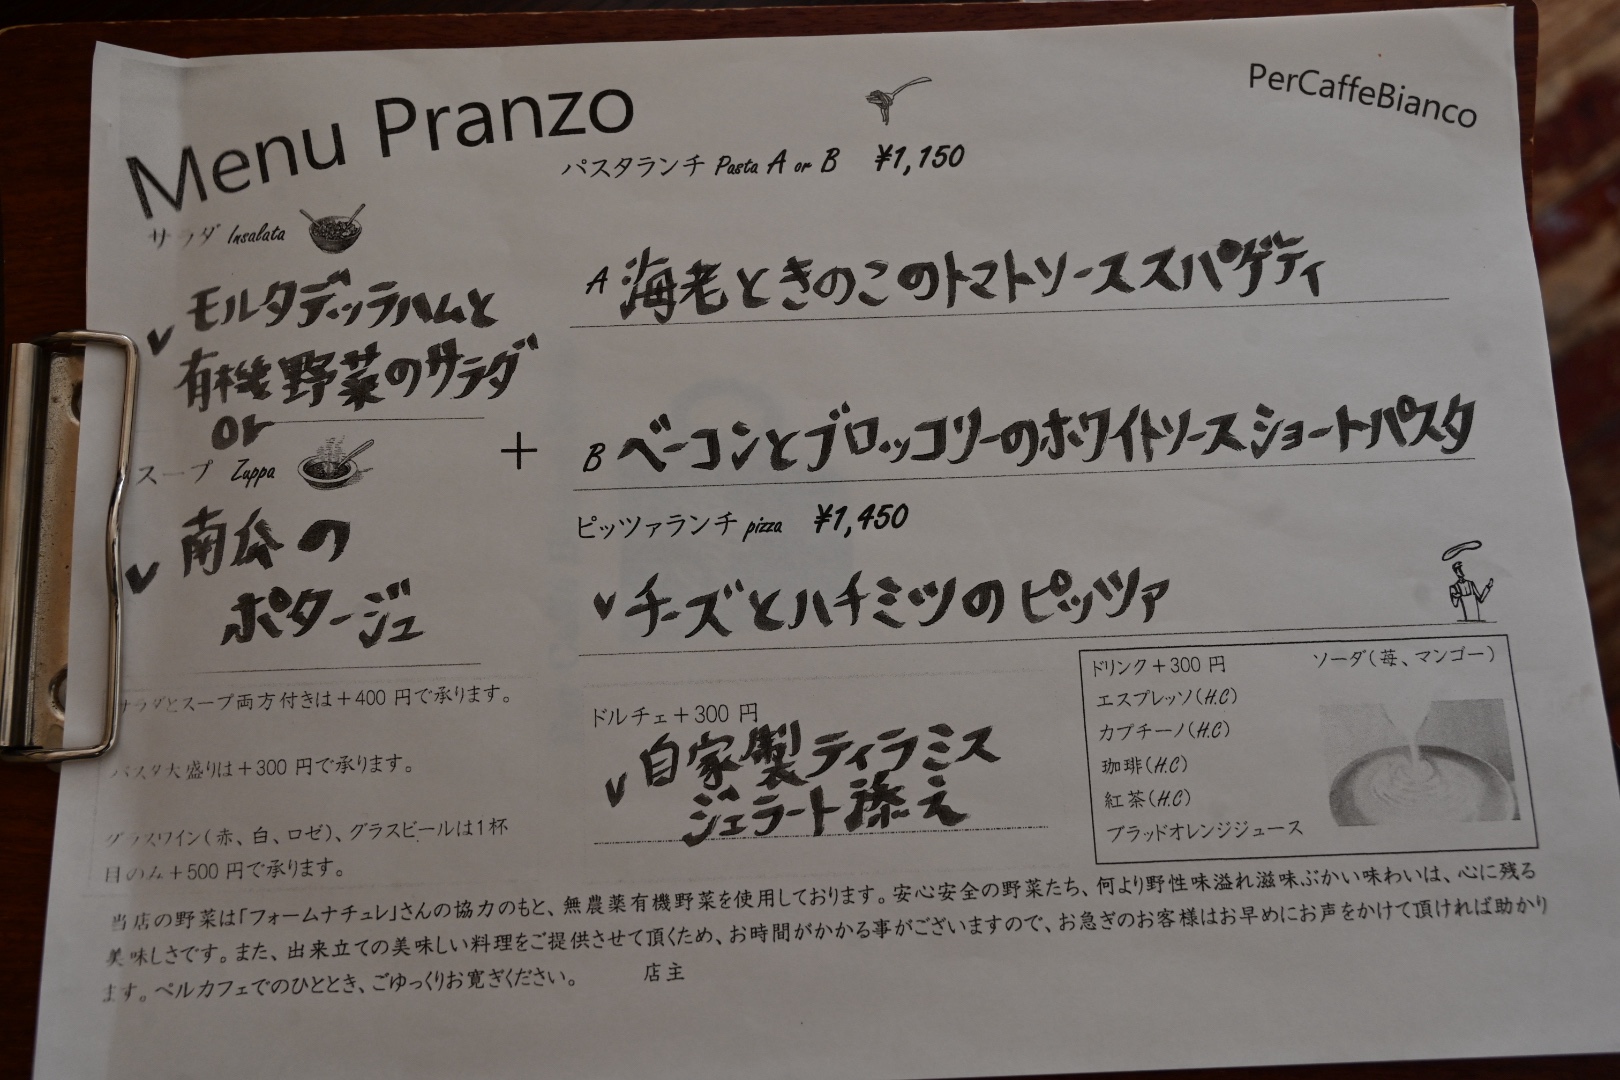 Menu Pranzo
PerCaffeBianco
パスタランチ Pasta A or B ¥1,150
サラダ Insalata
モルタデッラハムと
有機野菜のサラダ
or
スープ Zuppa
南瓜の
ポタージュ
+
A 海老ときのこのトマトソーススパゲティ
B ベーコンとブロッコリーのホワイトソースショートパスタ
ピッツァランチ pizza ¥1,450
チーズとハチミツのピッツァ
サラダとスープ両方付きは+400 円で承ります。
パスタ大盛りは+300 円で承ります。
グラスワイン(赤、白、ロゼ)、グラスビールは1杯
目のみ+500 円で承ります。
ドルチェ+300 円
自家製ティラミス
ジェラート添え
ドリンク+300 円 ソーダ(苺、マンゴー)
エスプレッソ(H.C)
カプチーノ(H.C)
珈琲(H.C)
紅茶(H.C)
ブラッドオレンジジュース
当店の野菜は「フォームナチュレ」さんの協力のもと、無農薬有機野菜を使用しております。安心安全の野菜たち、何より野性味溢れ滋味ぶかい味わいは、心に残る
美味しさです。また、出来立ての美味しい料理をご提供させて頂くため、お時間がかかる事がございますので、お急ぎのお客様はお早めにお声をかけて頂ければ助かり
ます。ペルカフェでのひととき、ごゆっくりお寛ぎください。 店主